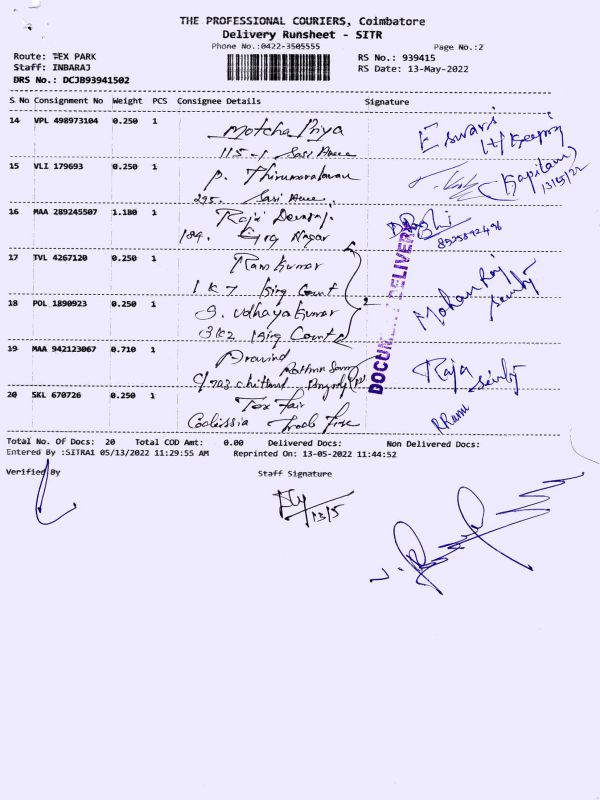 THE PROFESSIONAL COURIERS, Coimbatore
Delivery Runsheet - SITR
Phone No.:0422-3505555
Page No.:2
Route: TEX PARK
Staff: INBARAJ
DRS No.: DCJB93941502
RS No.: 939415
RS Date: 13-May-2022
S No Consignment No Weight PCS Consignee Details Signature
14 VPL 498973104 0.250 1 Motcha Priya Eswari
115-1 Sasi Avenue
15 VLI 179693 0.250 1 P. Thirumoralavan (Kapilan)
295. Sasi Avenue 13/5/22
16 MAA 289245507 1.180 1 Raji Devaraj
184. Nagar 8925892496
17 TVL 4267120 0.250 1 Ram Kumar
1 K 7 King Court Mohan Raj
18 POL 1890923 0.250 1 Udhaya Kumar
3K2 King Court
DOCUMENT DELIVERY
19 MAA 942123067 0.710 1 Aravind Raja
20 SKL 670726 0.250 1 Tex Fair
Codissia Trade
Total No. Of Docs: 20 Total COD Amt: 0.00 Delivered Docs: Non Delivered Docs:
Entered By :SITRA1 05/13/2022 11:29:55 AM Reprinted On: 13-05-2022 11:44:52
Verified By Staff Signature
13/5